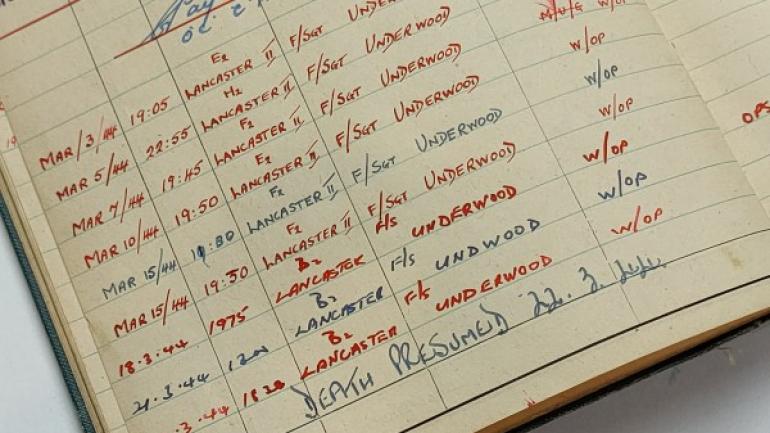 MAR/3/44 19:05 E2 LANCASTER II F/SGT UNDERWOOD
MAR 5/44 22:55 H2 LANCASTER II F/SGT UNDERWOOD
MAR 7/44 19:45 F2 LANCASTER II F/SGT UNDERWOOD M/U/G W/OP
MAR 10/44 19:50 E2 LANCASTER II F/SGT UNDERWOOD W/OP
MAR 15/44 F2 LANCASTER II F/SGT UNDERWOOD W/OP
MAR 15/44 19:30 F2 LANCASTER II F/SGT UNDERWOOD W/OP
18.3.44 1975 B2 LANCASTER F/S UNDERWOOD W/OP
21.3.44 B2 LANCASTER F/S UNDWOOD W/OP
.3.44 B2 LANCASTER F/S UNDERWOOD W/OP
DEATH PRESUMED 22.3.44.
OPS